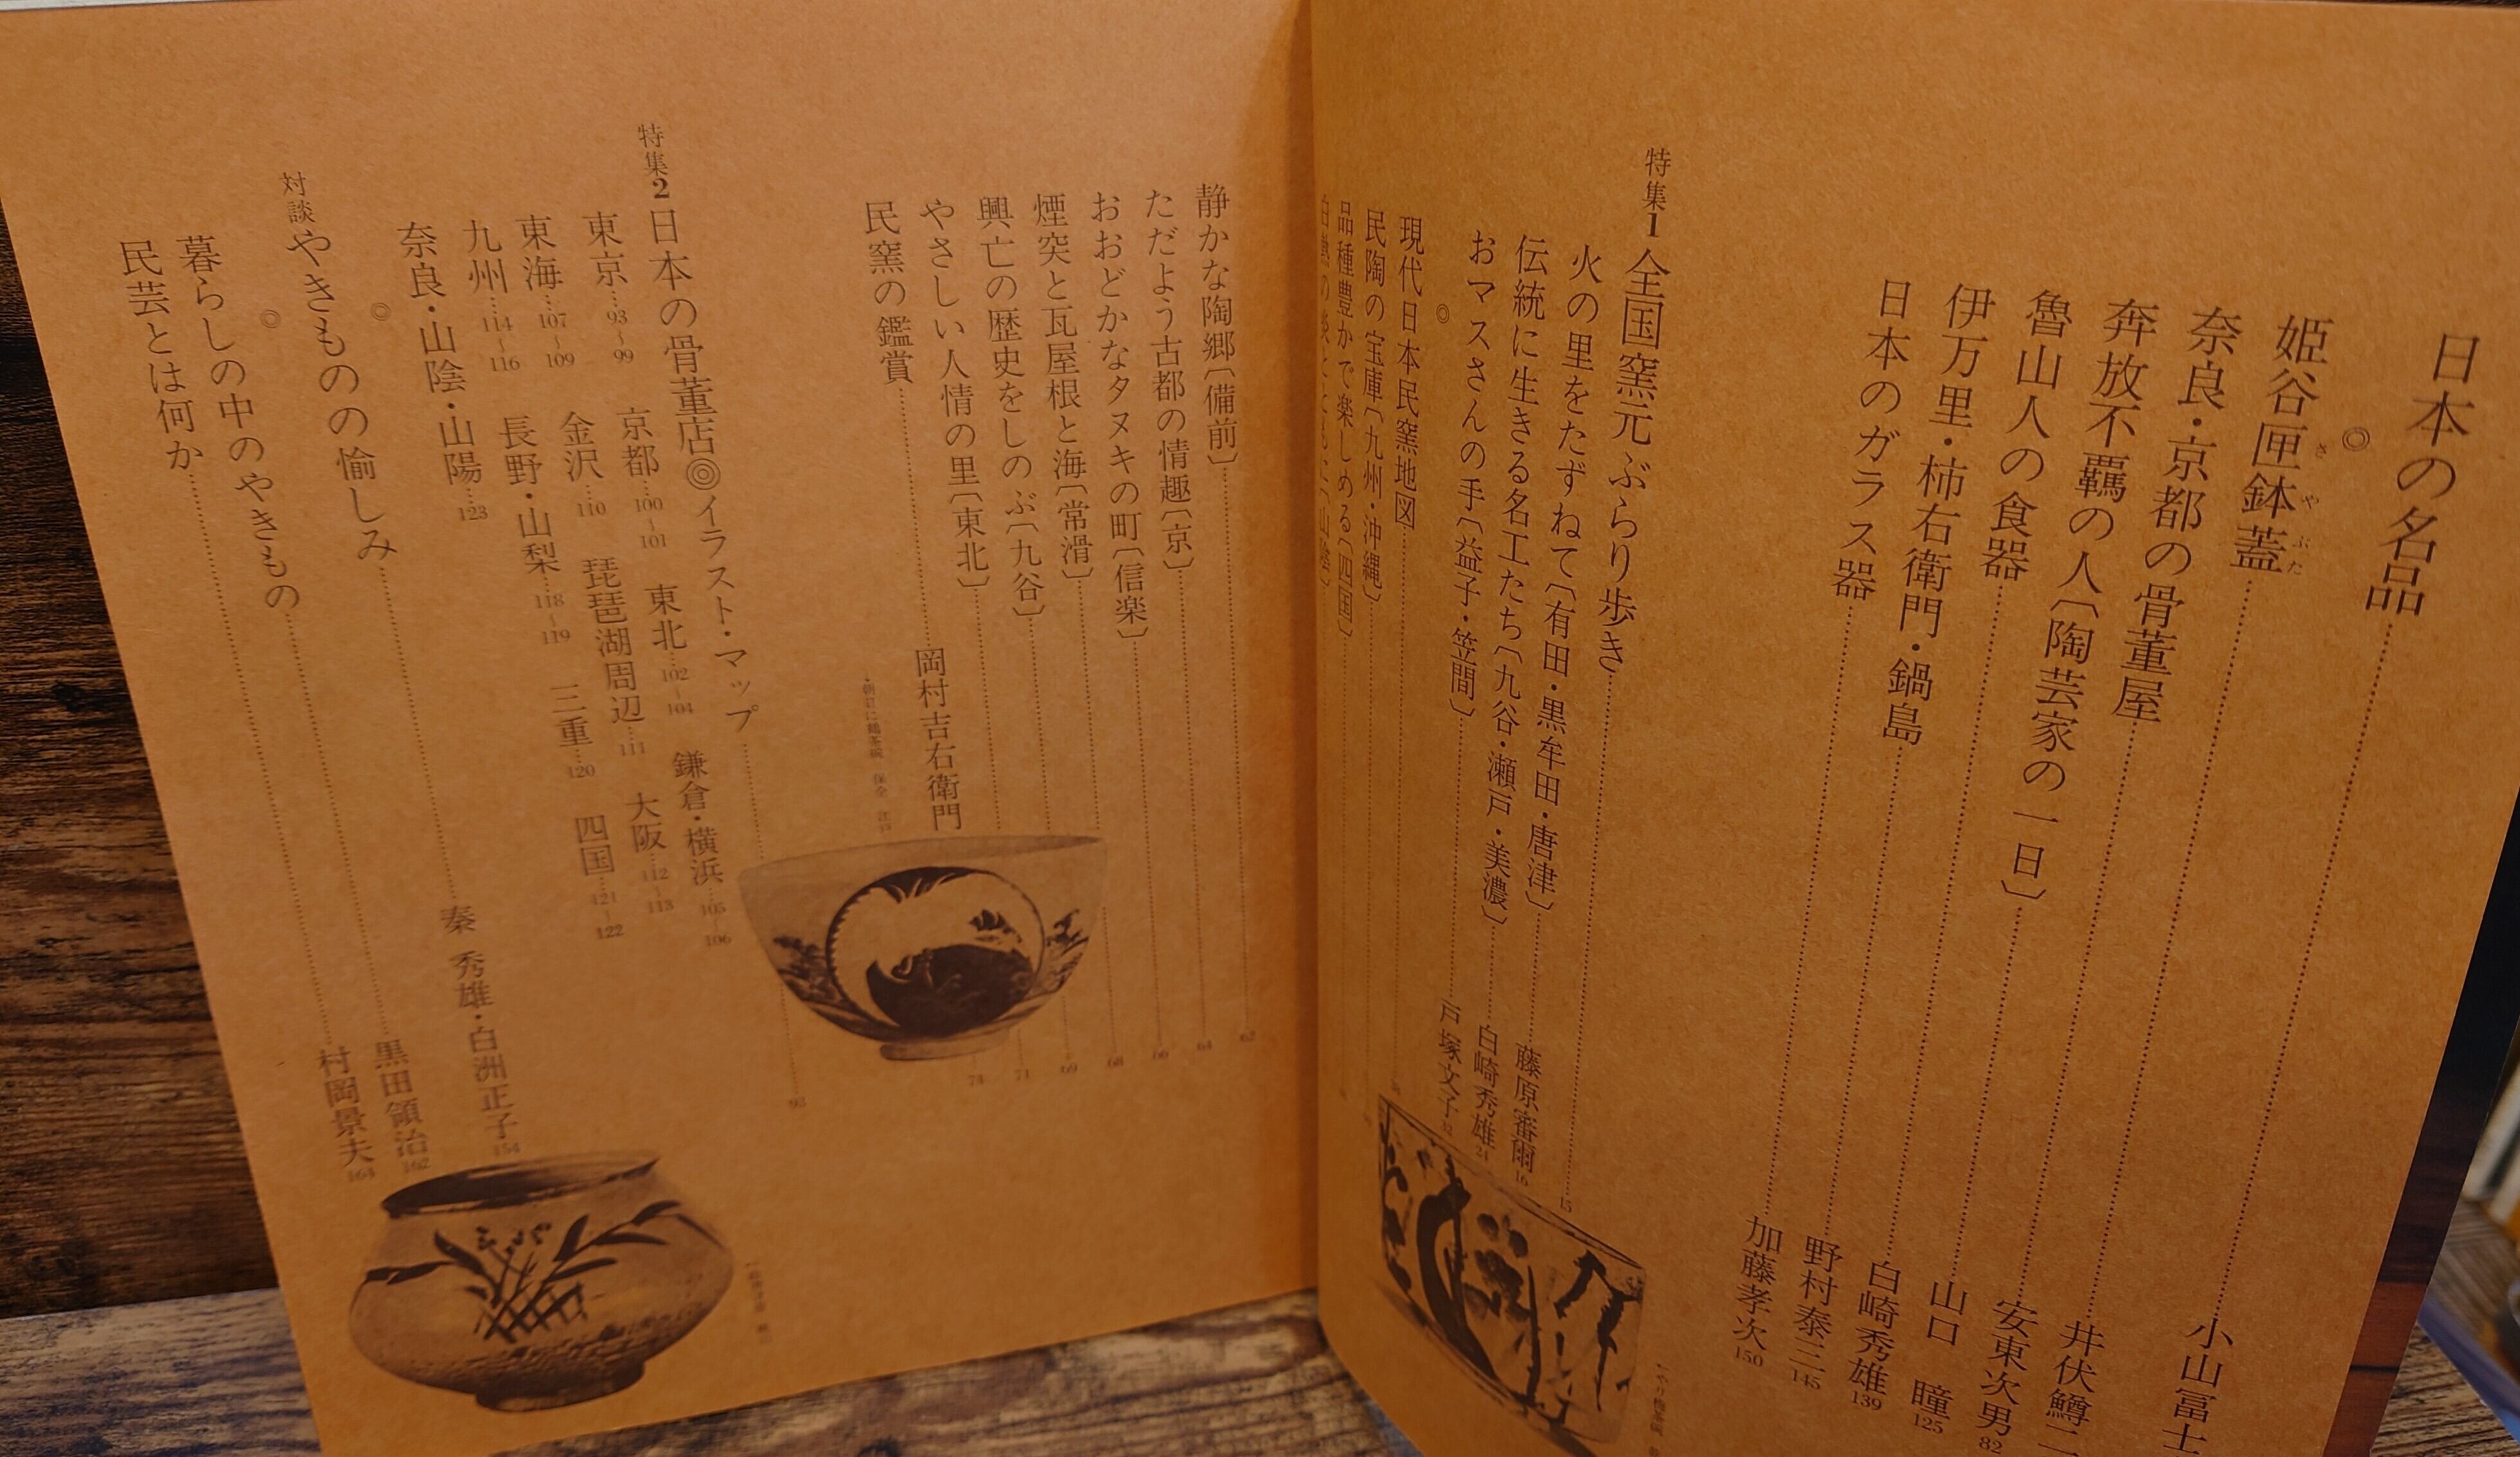 日本の名品……小山冨士
◎
姫谷匣鉢蓋……井伏鱒二
さやぶた
奈良・京都の骨董屋……安東次男 82
奔放不羈の人〔陶芸家の一日〕……山口 瞳 125
魯山人の食器……白崎秀雄 139
伊万里・柿右衛門・鍋島……野村泰三 145
日本のガラス器……加藤孝次 150
特集1 全国窯元ぶらり歩き……15
火の里をたずねて〔有田・黒牟田・唐津〕……藤原審爾 16
伝統に生きる名工たち〔九谷・瀬戸・美濃〕……白崎秀雄 24
おマスさんの手〔益子・笠間〕……戸塚文子
◎
現代日本民窯地図……
民陶の宝庫〔九州・沖縄〕……
品種豊かで楽しめる〔四国〕……
静かな陶郷〔備前〕……62
ただよう古都の情趣〔京〕……64
おおどかなタヌキの町〔信楽〕……66
煙突と瓦屋根と海〔常滑〕……68
興亡の歴史をしのぶ〔九谷〕……69
やさしい人情の里〔東北〕……71
民窯の鑑賞……岡村吉右衛門 73
特集2 日本の骨董店◎イラスト・マップ……93
東京…93〜99 京都…100〜101 東北…102〜104 鎌倉・横浜…105〜106
東海…107〜109 金沢…110 琵琶湖周辺…111 大阪…112〜113
九州…114〜116 長野・山梨…118〜119 三重…120 四国…121〜122
奈良・山陰・山陽…123
◎
対談 やきものの愉しみ……秦 秀雄・白洲正子 154
◎
暮らしの中のやきもの……黒田領治 162
民芸とは何か……村岡景夫 164